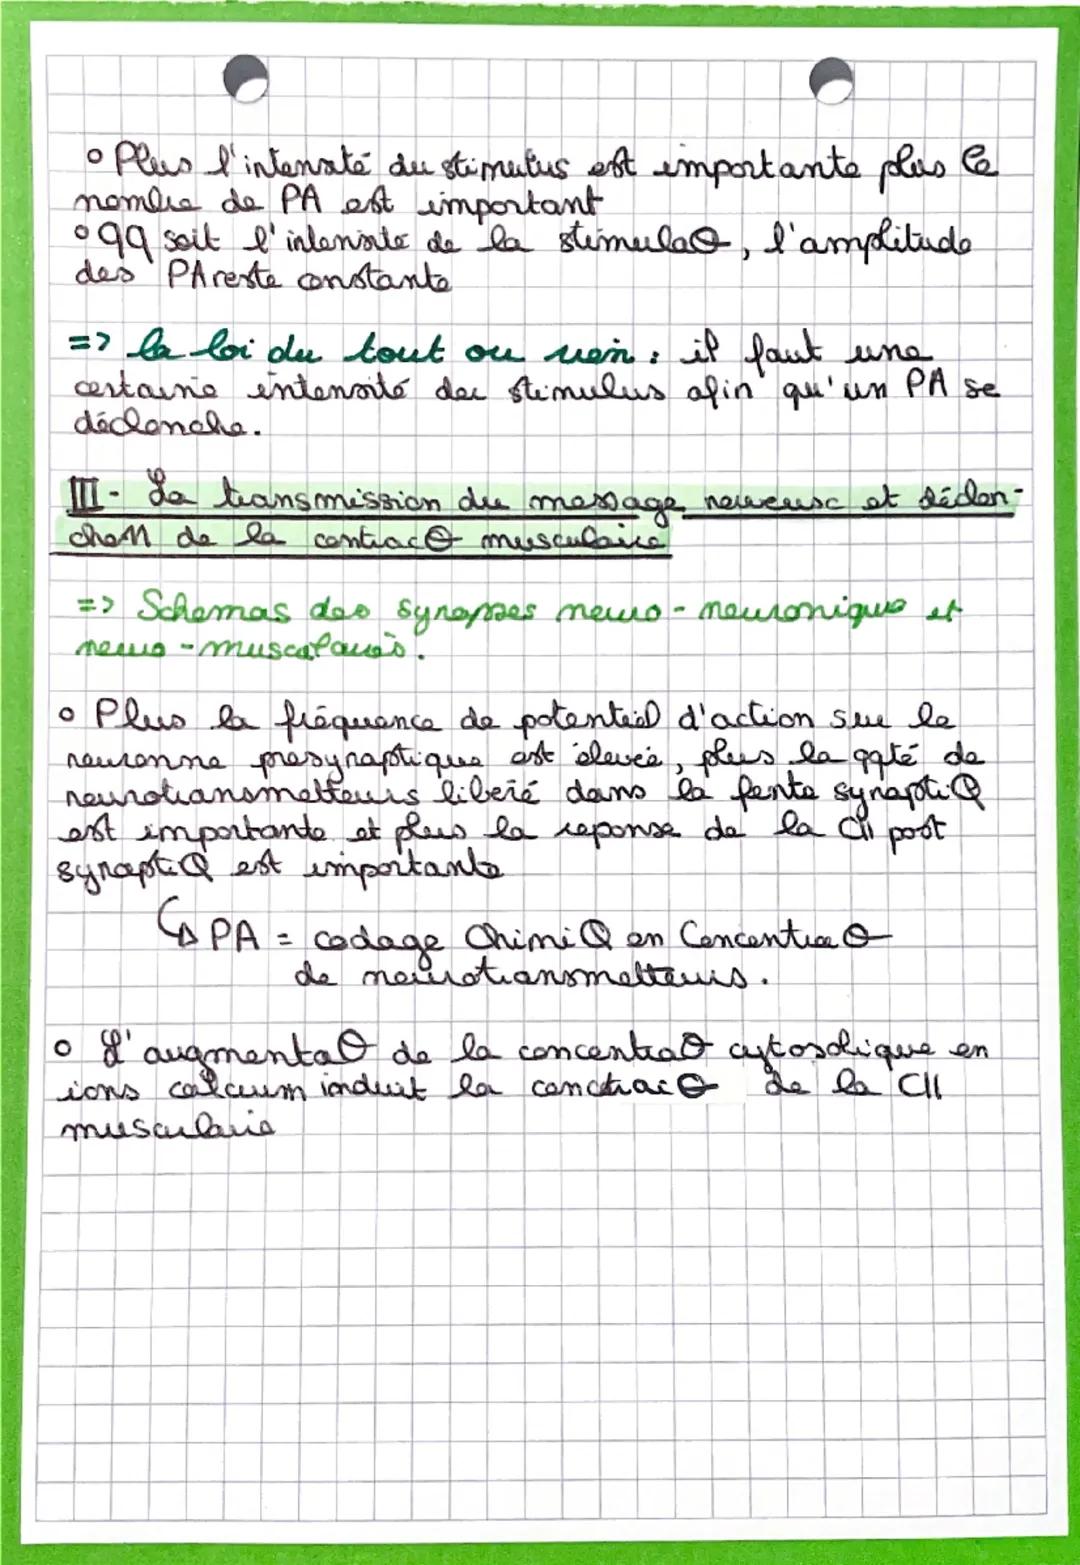 ° Plus l'intensité du stimulus est importante plus le
nombre de PA est important
° qq soit l'intensité de la stimulaΘ, l'amplitude
des PA reste constante
=> la loi du tout ou rien : il faut une
certaine intensité du stimulus afin qu'un PA se
déclenche.
III - La transmission du message nerveuse et déclen-
cheM de la contracΘ musculaire
=> Schemas des synapses neuro-neuronique et
neuro-musculaires.
° Plus la fréquence de potentiel d'action sur le
neuronne presynaptique est élevée, plus la qqté de
neurotransmetteurs liberé dans la fente synaptiQ
est importante et plus la reponse de la Cll post
synaptiQ est importante
↳ PA = codage ChimiQ en ConcentraΘ
de neurotransmetteurs.
° L'augmentaΘ de la concentraΘ cytosolique en
ions calcium induit la conctracΘ de la Cll
musculaire